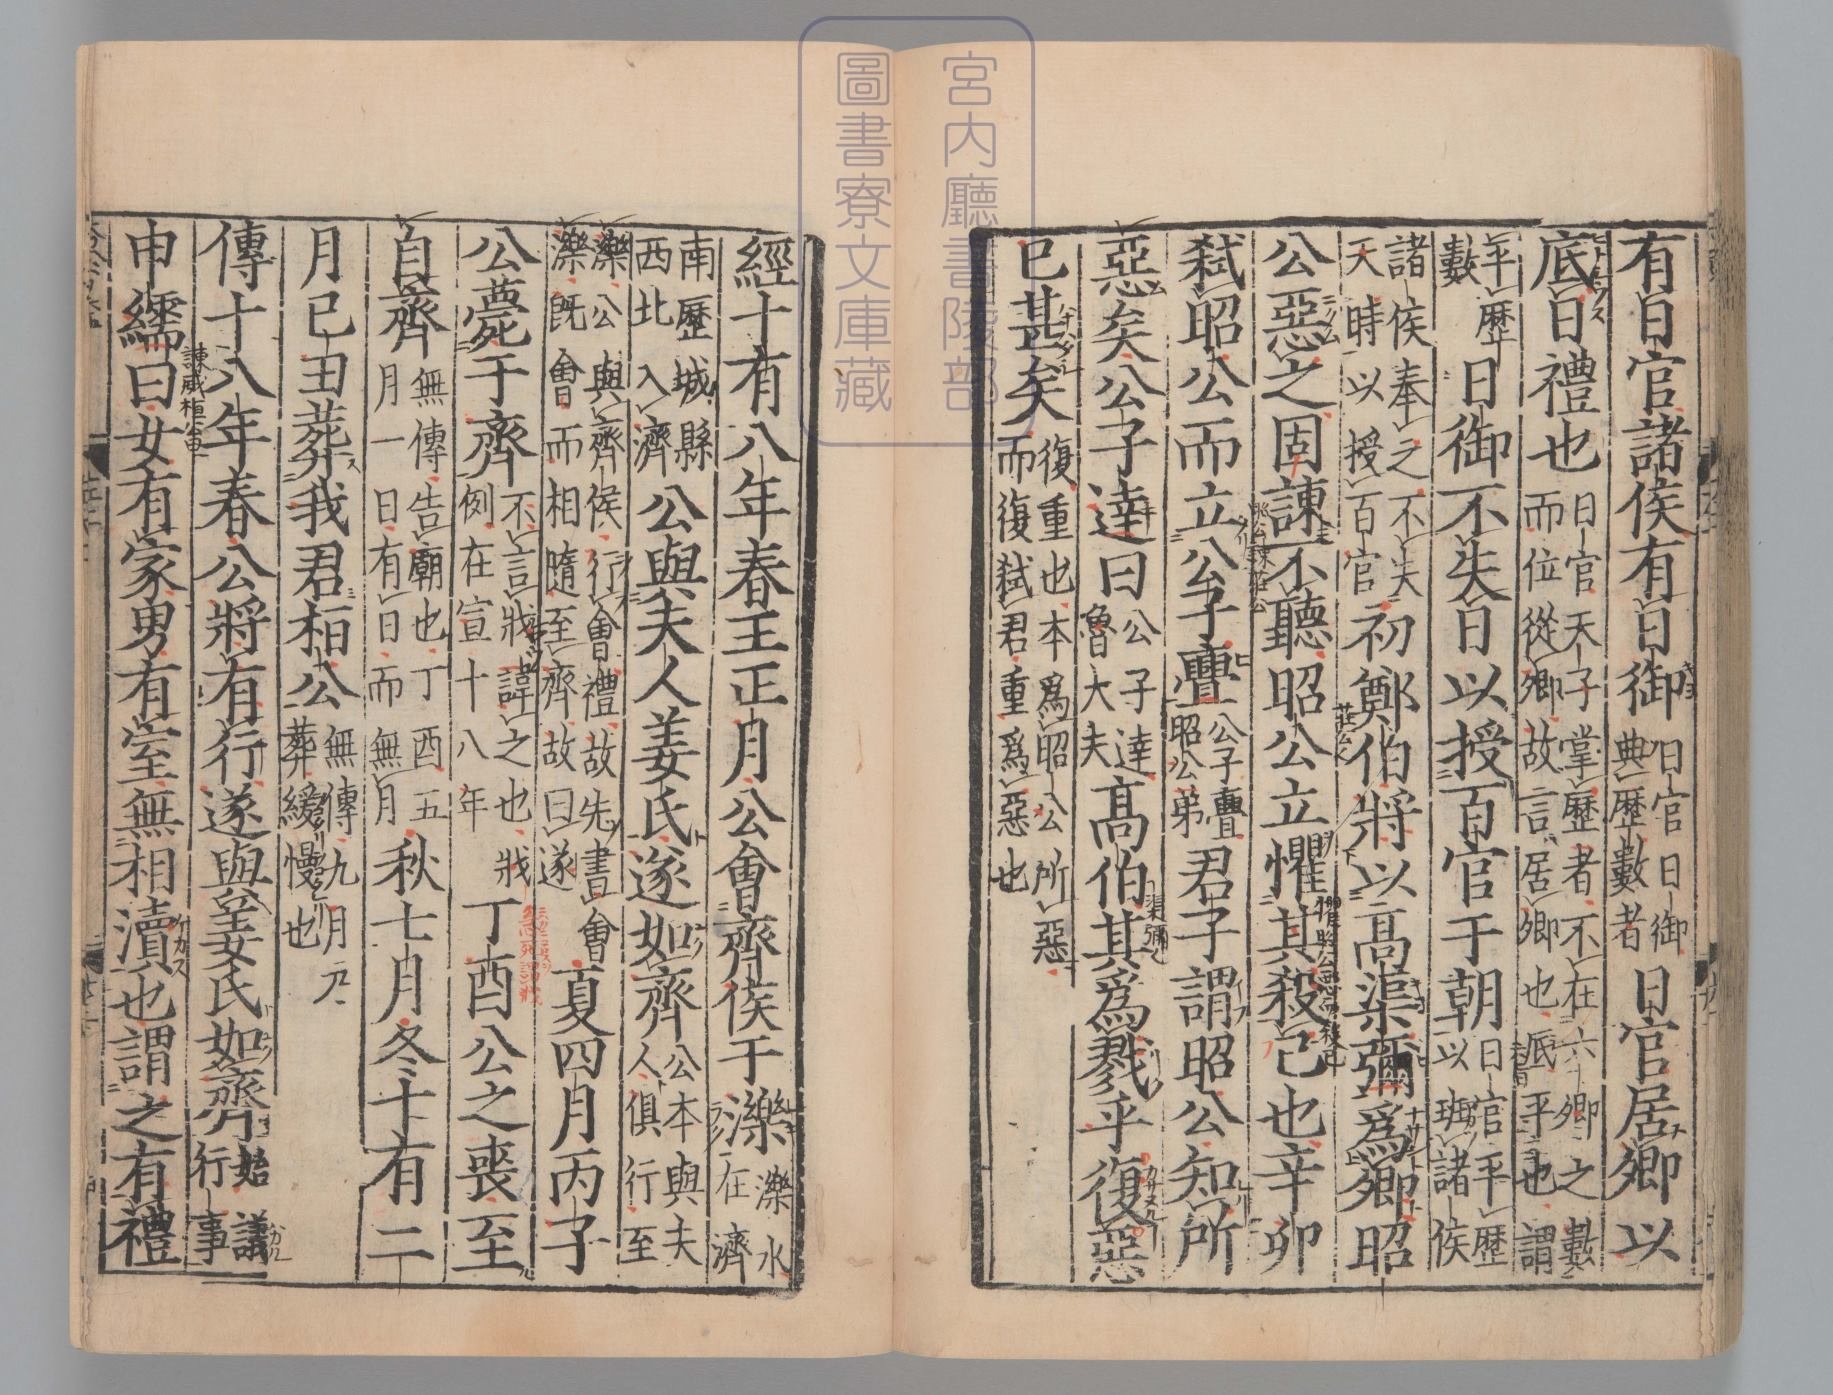 宮內廳書陵部
圖書寮文庫藏
有日官諸侯有日御日官日御典歷數者日官居卿以
底日禮也日官天子掌歷者不在六卿之數而位從卿故言居卿也底平也謂
平歷數日御不失日以授百官于朝日官平歷以班諸侯
諸侯奉之不失天時以授百官初鄭伯將以高渠彌爲卿昭
公惡之固諫不聽昭公立懼其殺己也辛卯
弑昭公而立公子亹公子亹昭公弟君子謂昭公知所
惡矣公子達曰公子達魯大夫高伯其爲戮乎復惡
已甚矣復重也本爲昭公所惡而復弑君重爲惡也
經十有八年春王正月公會齊侯于濼濼水在濟
南歷城縣西北入濟公與夫人姜氏遂如齊公本與夫人俱行至
濼公與齊侯行會禮故先書會濼既會而相隨至齊故曰遂夏四月丙子
公薨于齊不言戕諱之也戕例在宣十八年丁酉公之喪至
自齊無傳告廟也丁酉五月一日有日而無月秋七月冬十有二
月己丑葬我君桓公無傳九月乃葬緩慢也
傳十八年春公將有行遂與姜氏如齊始議行事
申繻曰女有家男有室無相瀆也謂之有禮